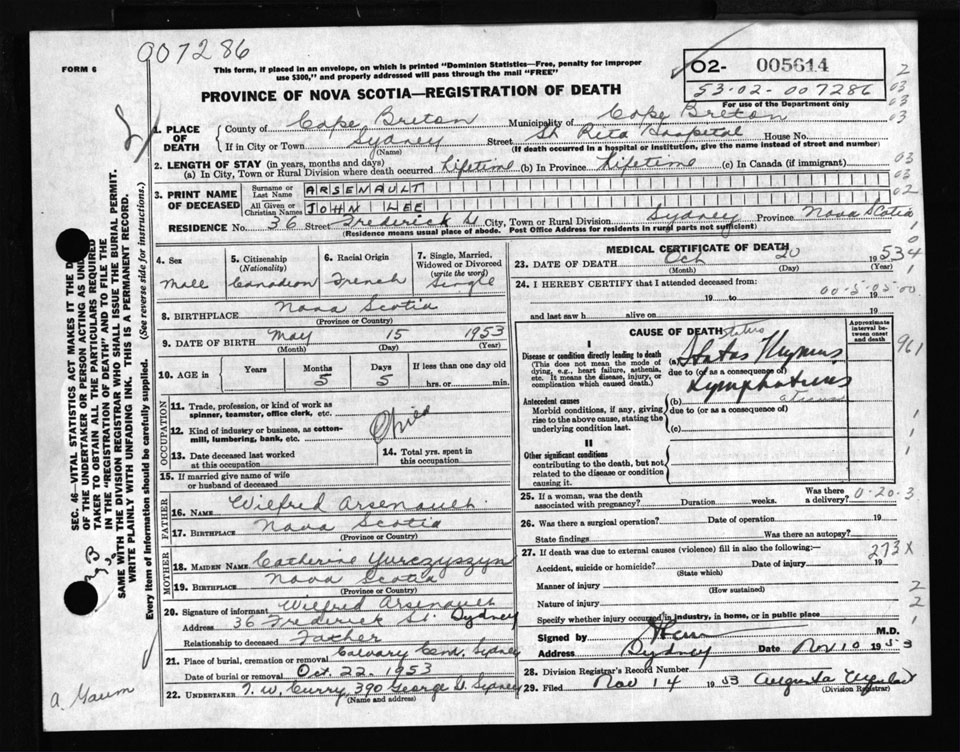 007286
FORM 6
This form, if placed in an envelope, on which is printed "Dominion Statistics—Free, penalty for improper
use $300," and properly addressed will pass through the mail "FREE"
O2- 005614
53-02-007286
For use of the Department only
PROVINCE OF NOVA SCOTIA—REGISTRATION OF DEATH
1. PLACE OF DEATH
County of Cape Breton Municipality of Cape Breton
If in City or Town Sydney Street St Rita Hospital House No.
(Name) (If death occurred in a hospital or institution, give the name instead of street and number)
2. LENGTH OF STAY (in years, months and days)
(a) In City, Town or Rural Division where death occurred Lifetime (b) In Province Lifetime (c) In Canada (if immigrant)
3. PRINT NAME OF DECEASED
Surname or Last Name ARSENAULT
All Given or Christian Names JOHN LEE
RESIDENCE No. 36 Street Frederick St City, Town or Rural Division Sydney Province Nova Scotia
(Residence means usual place of abode. Post Office Address for residents in rural parts not sufficient)
4. Sex Male
5. Citizenship (Nationality) Canadian
6. Racial Origin French
7. Single, Married, Widowed or Divorced (write the word) Single
8. BIRTHPLACE Nova Scotia
(Province or Country)
9. DATE OF BIRTH May 15 1953
(Month) (Day) (Year)
10. AGE in Years Months 5 Days 5 If less than one day old
hrs. or min.
OCCUPATION
11. Trade, profession, or kind of work as
spinner, teamster, office clerk, etc.
12. Kind of industry or business, as cotton-
mill, lumbering, bank, etc.
Child
13. Date deceased last worked
at this occupation
14. Total yrs. spent in
this occupation
15. If married give name of wife
or husband of deceased
FATHER
16. NAME Wilfred Arsenault
17. BIRTHPLACE Nova Scotia
(Province or Country)
MOTHER
18. MAIDEN NAME Catherine Yurczyszyn
19. BIRTHPLACE Nova Scotia
(Province or Country)
20. Signature of informant Wilfred Arsenault
Address 36 Frederick St. Sydney
Relationship to deceased Father
21. Place of burial, cremation or removal Calvary Cem, Sydney
Date of burial or removal Oct. 22. 1953
22. UNDERTAKER T. W. Curry, 390 George St. Sydney
(Name and address)
MEDICAL CERTIFICATE OF DEATH
23. DATE OF DEATH Oct 20 1953
(Month) (Day) (Year)
24. I HEREBY CERTIFY that I attended deceased from:
19 to 19
and last saw h alive on 19
CAUSE OF DEATH
Approximate interval between onset and death
I
Disease or condition directly leading to death
(This does not mean the mode of
dying, e.g., heart failure, asthenia,
etc. It means the disease, injury, or
complication which caused death.)
(a) Status Thymus
due to (or as a consequence of)
Lymphaticus
Antecedent causes
Morbid conditions, if any, giving
rise to the above cause, stating the
underlying condition last.
(b)
due to (or as a consequence of)
(c)
II
Other significant conditions
contributing to the death, but not
related to the disease or condition
causing it.
961
25. If a woman, was the death
associated with pregnancy? Duration weeks. Was there a delivery? 0-20-3
26. Was there a surgical operation? Date of operation 19
State findings Was there an autopsy?
27. If death was due to external causes (violence) fill in also the following:— 273X
Accident, suicide or homicide? Date of injury 19
(State which)
Manner of injury
(How sustained)
Nature of injury
Specify whether injury occurred in industry, in home, or in public place
Signed by M.D.
Address Sydney Date Nov 10 1953
28. Division Registrar's Record Number
29. Filed Nov 14 1953 Augusta
(Division Registrar)
SEC. 46—VITAL STATISTICS ACT MAKES IT THE
OF THE UNDERTAKER OR PERSON ACTING AS
TAKER TO OBTAIN ALL THE PARTICULARS REQUIRED
IN THE "REGISTRATION OF DEATH" AND TO FILE THE
SAME WITH THE DIVISION REGISTRAR WHO SHALL ISSUE THE BURIAL PERMIT.
WRITE PLAINLY WITH UNFADING INK. THIS IS A PERMANENT RECORD.
Every item of information should be carefully supplied. (See reverse side for instructions.)